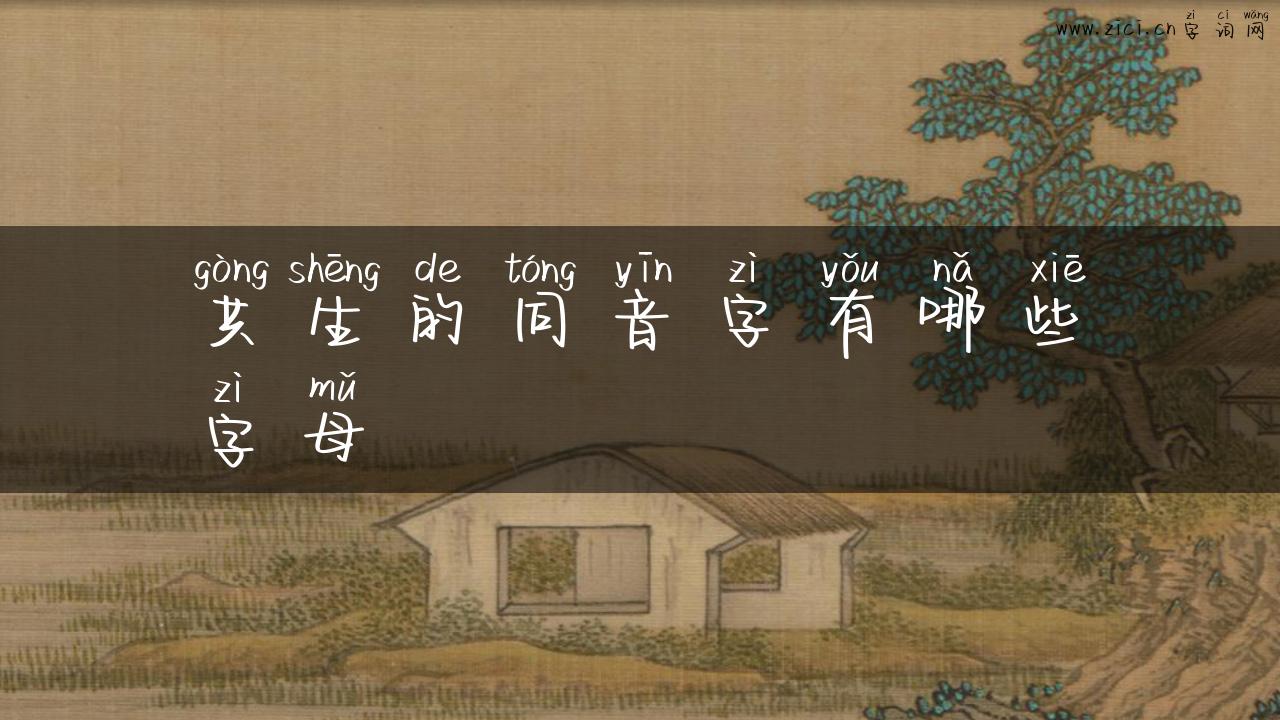 zì cí wǎng
www.zici.cn 字词网
gòng shēng de tóng yīn zì yǒu nǎ xiē
共生的同音字有哪些
zì mǔ
字母